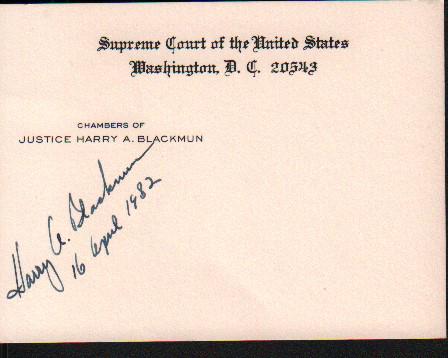 Supreme Court of the United States
Washington, D. C. 20543
CHAMBERS OF
JUSTICE HARRY A. BLACKMUN
Harry A. Blackmun
16 April 1982